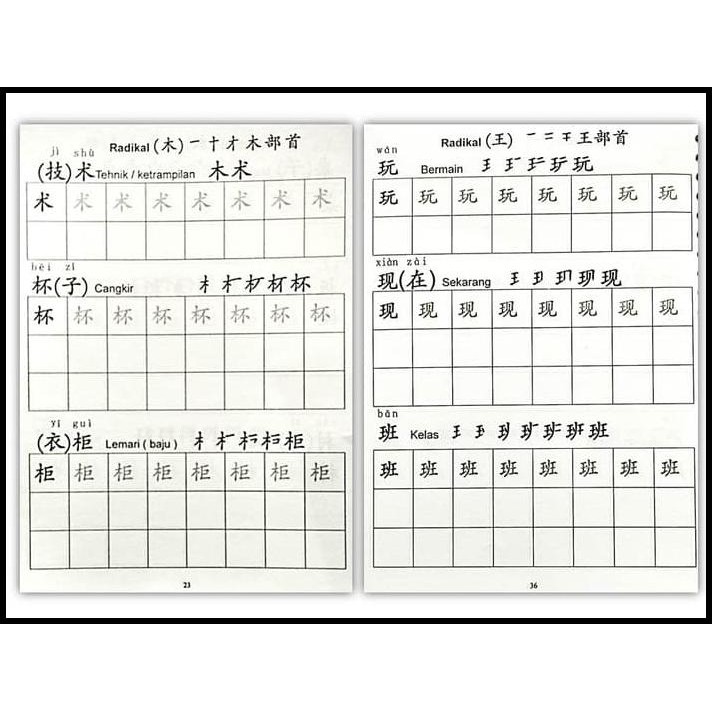 jì shù
Radikal (木) 一 十 才 木 部首
(技)术 Tehnik / ketrampilan 木术
术 术 术 术 术 术 术 术
bēi zǐ
杯(子) Cangkir 杯
杯 杯 杯 杯 杯 杯 杯 杯
yī guì
(衣)柜 Lemari ( baju ) 柜
柜 柜 柜 柜 柜 柜 柜 柜
23
Radikal (王) 一 二 干 王 部首
wán
玩 Bermain 玩
玩 玩 玩 玩 玩 玩 玩 玩
xiàn zài
现(在) Sekarang 现
现 现 现 现 现 现 现 现
bān
班 Kelas 班
班 班 班 班 班 班 班 班
36